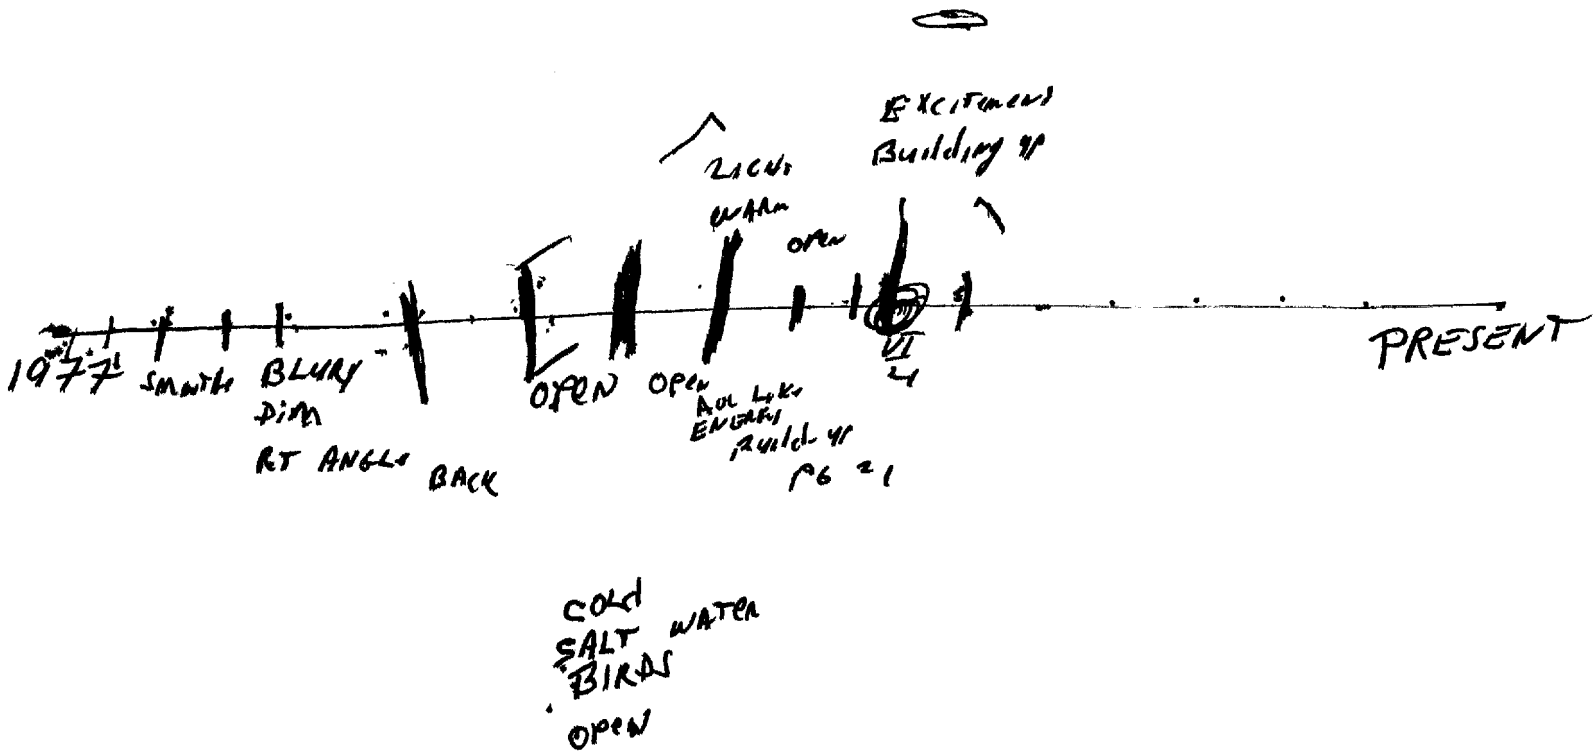 EXCITEMENT
Building up
LIGHT
WARM
OPEN
VI
4
1977
BLURY
DIM
RT ANGLE
BACK
OPEN
OPEN
ENERGY
Build up
PG 21
PRESENT
COLd
SALT WATER
BIRDS
OPEN